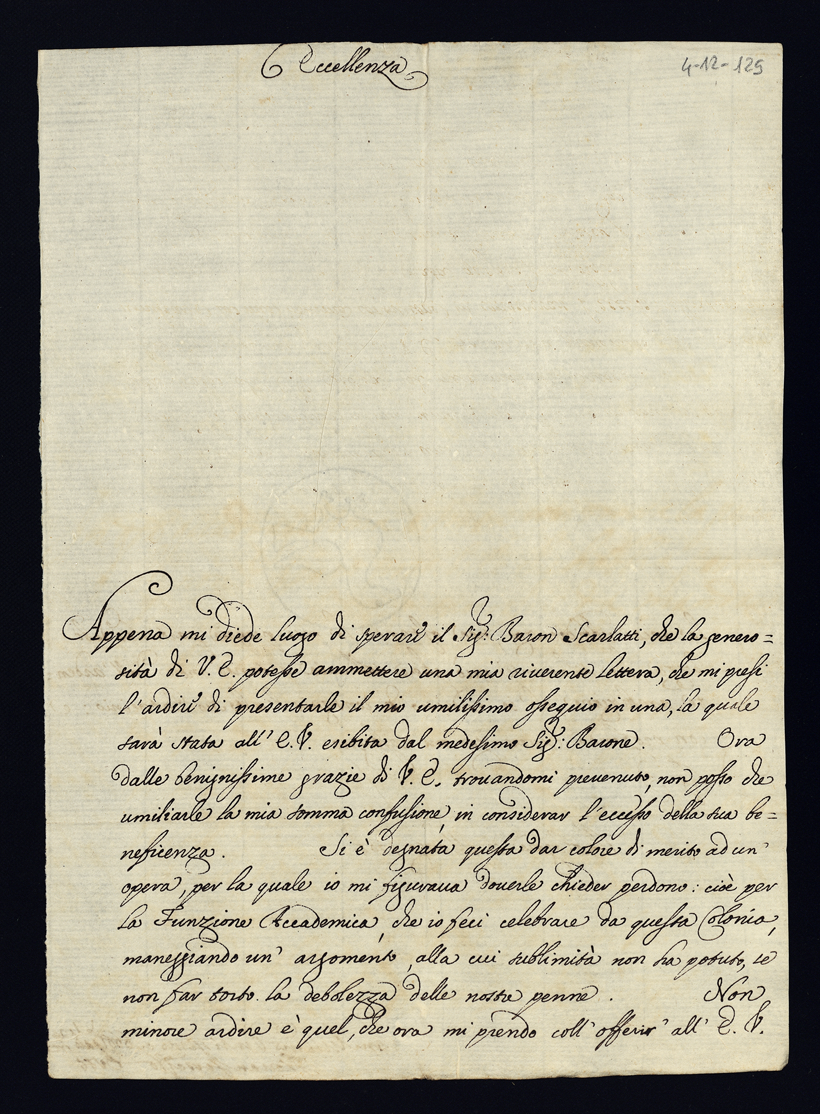 Eccellenza
4-12-129
Appena mi diede luogo di sperare il Sig.r Baron Scarlatti, che la genero=
sità di V. E. potesse ammettere una mia riverente lettera, che mi presi
l'ardire di presentarle il mio umilissimo ossequio in una, la quale
sarà stata all' E. V. esibita dal medesimo Sig.r Barone. Ora
dalle benignissime grazie di V. E. trovandomi prevenuto, non posso che
umiliarle la mia somma confusione, in considerar l'eccesso della sua be=
neficenza. Si è degnata questa dar colore di merito ad un'
opera, per la quale io mi figurava doverle chieder perdono: cioè per
la Funzione Accademica, che io feci celebrare da questa Colonia,
maneggiando un' argomento, alla cui sublimità non ha potuto, se
non far torto la debolezza delle nostre penne. Non
minore ardire è quel, che ora mi prendo coll' offerir' all' E. V.